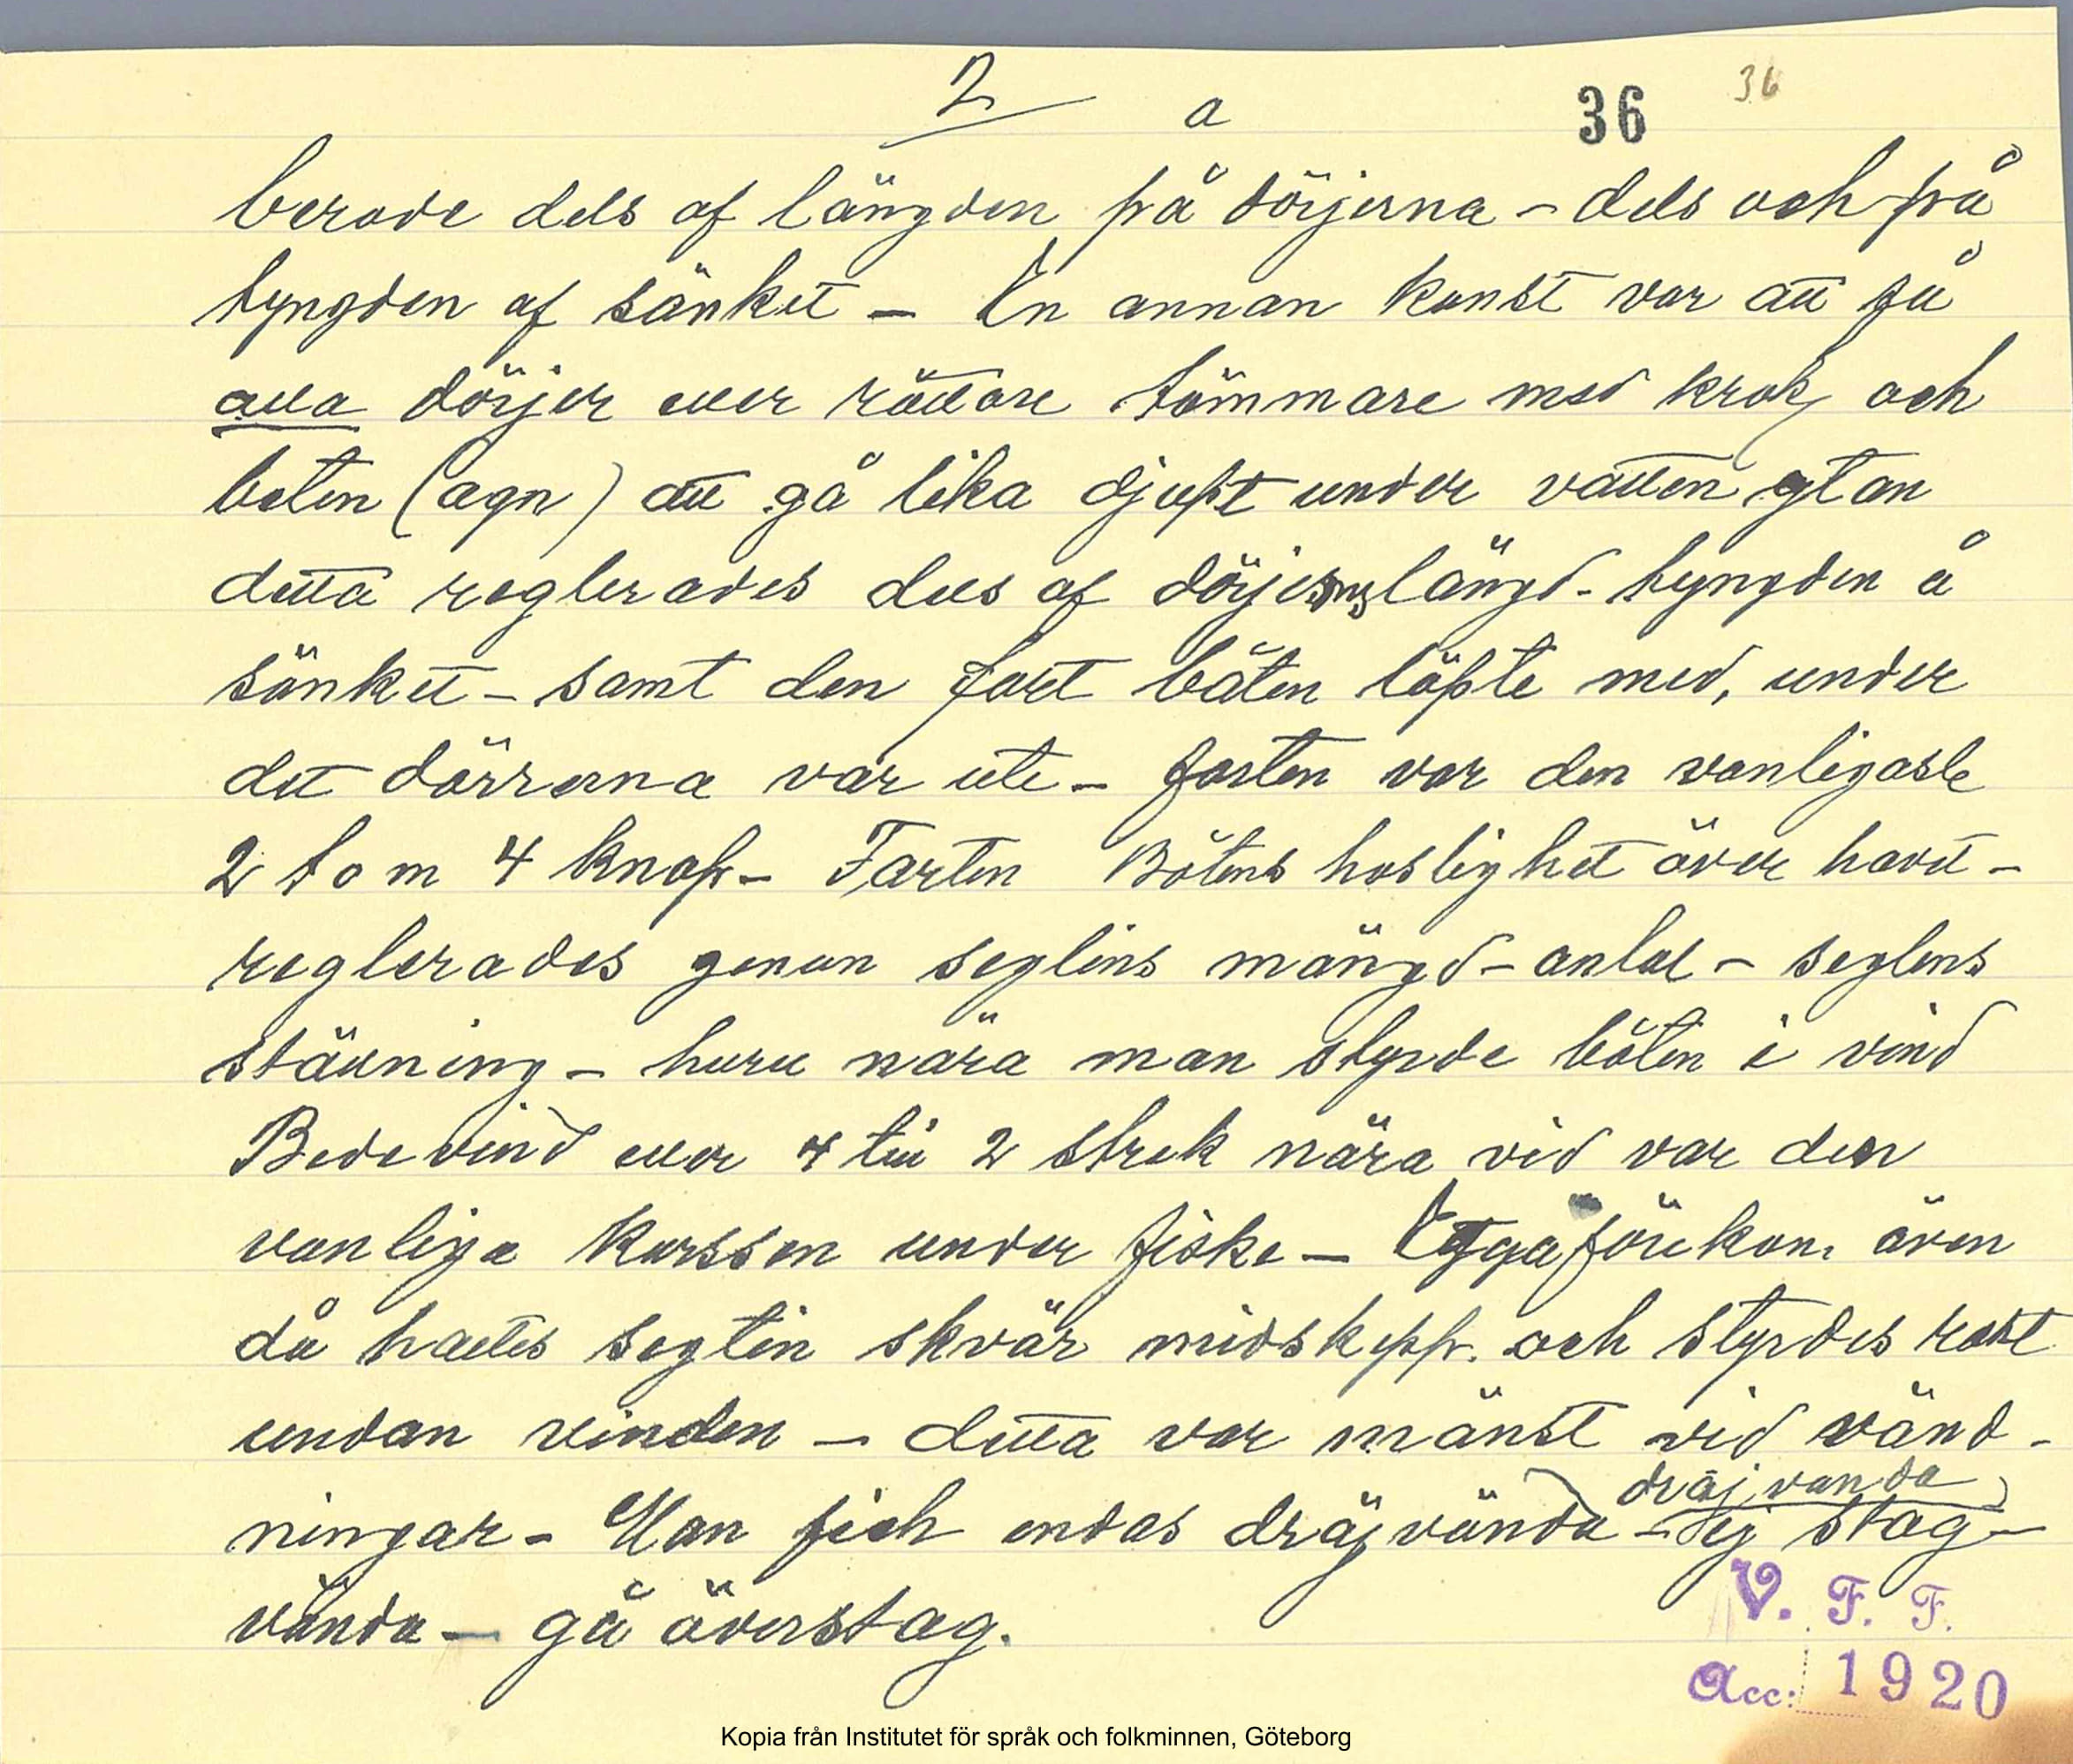 2 a 36 36
berode dels af längden på dörjerna – dels och på
tyngden af sänket – En annan konst var att få
alla dörjer eller rättare tömmare med krok och
beten (agn) att gå lika djupt under vatten ytan
detta reglerades dels af dörjerns längd – tyngden å
sänket – samt den fart båten löpte med, under
det dörrerna var ute – farten var den vanligaste
2 to m 4 knop – Farten Båtens hastighet över havet –
reglerades genom seglens mängd – antal – seglens
ställning – huru nära man styrde båten i vind
Bede vind eller 4 till 2 strek nära vid var den
vanliga kurssen under fiske – förekom även
då haltes seglen skvär midskepp. och styrdes rakt
undan vinden – detta var mänst vid vänd-
dräj vanda
ningar – Man fick endas dräjvända – ej stag –
vända – gå överstag.
V. F. F.
Acc: 1920
Kopia från Institutet för språk och folkminnen, Göteborg